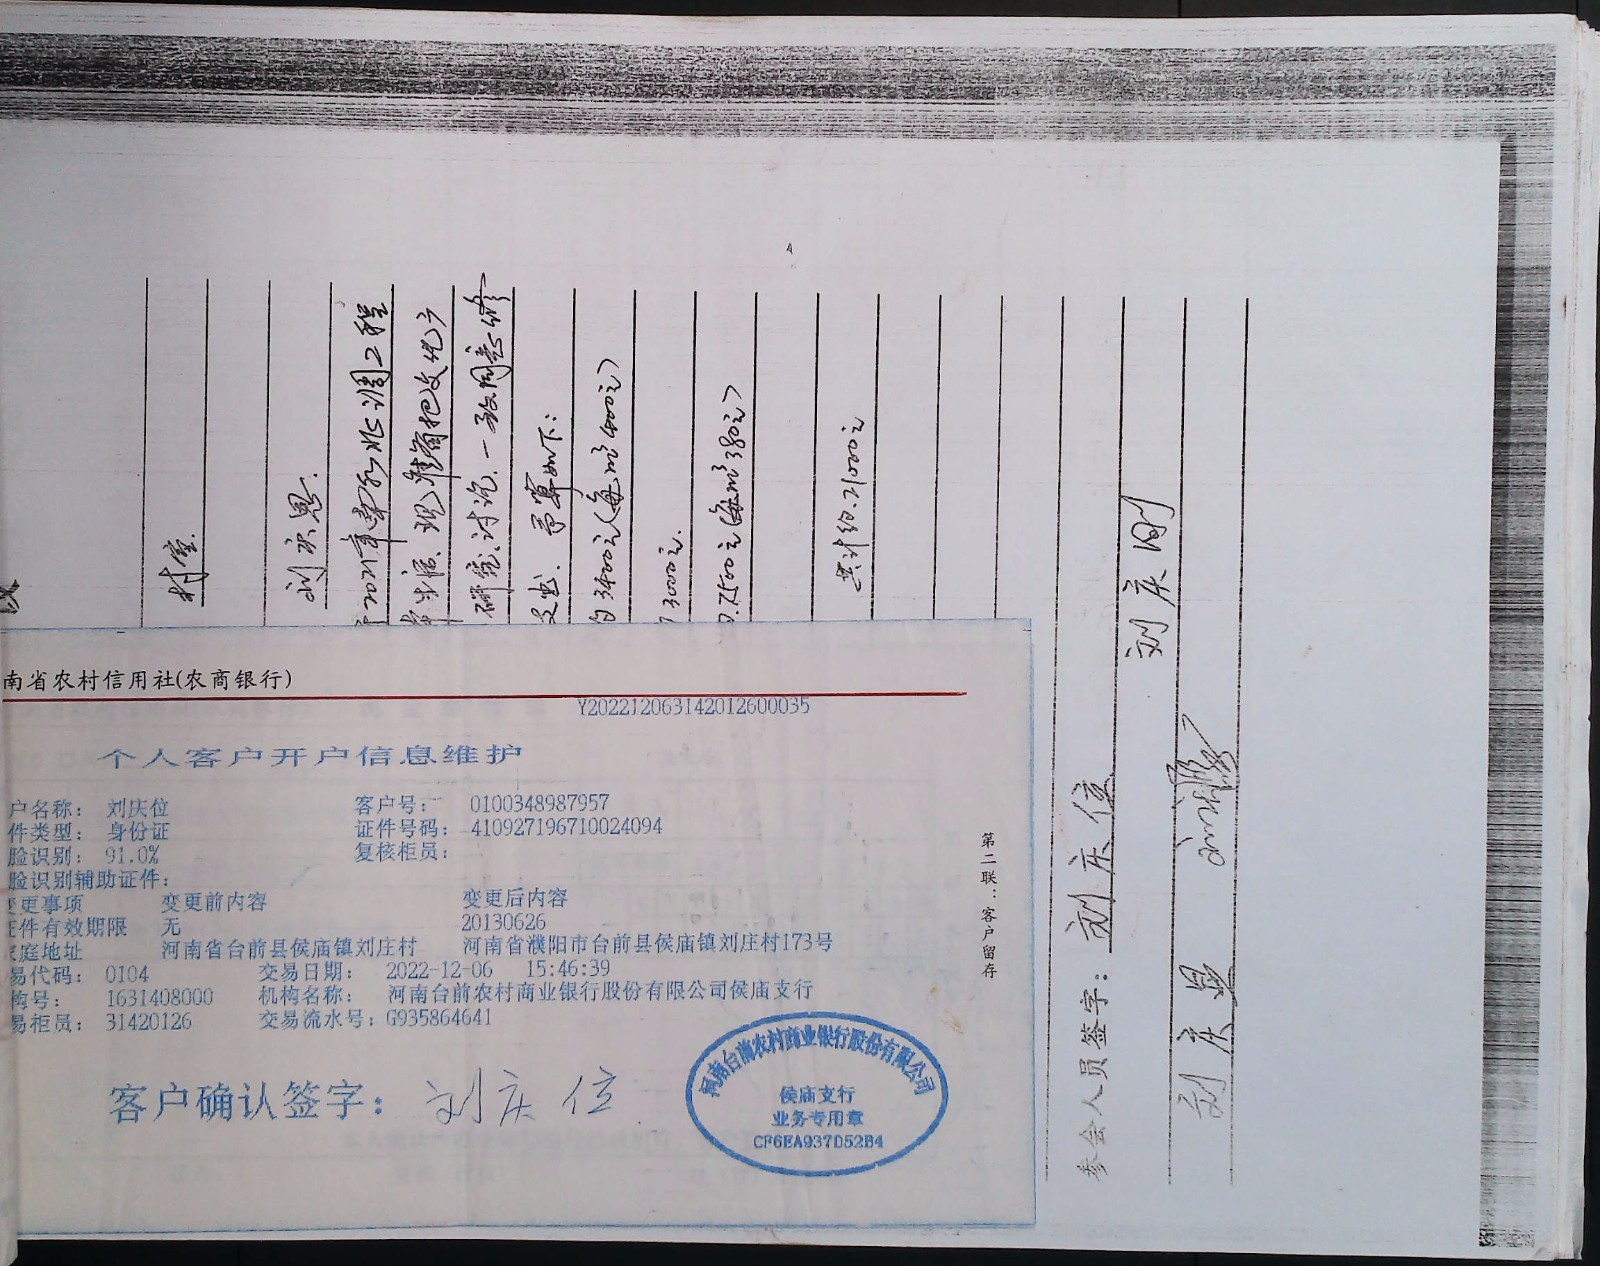 村室.
刘庆恩.
调工程
现准备把文化广
研究讨论.一致同意修
支出.予算如下:
约3400元(每m³400元)
3000元.
7500元(每m³380元)
共计约.21000元
南省农村信用社(农商银行)
Y202212063142012600035
个人客户开户信息维护
户名称: 刘庆位 客户号: 0100348987957
件类型: 身份证 证件号码: 410927196710024094
脸识别: 91.0% 复核柜员:
脸识别辅助证件:
变更事项 变更前内容 变更后内容
证件有效期限 无 20130626
家庭地址 河南省台前县侯庙镇刘庄村 河南省濮阳市台前县侯庙镇刘庄村173号
易代码: 0104 交易日期: 2022-12-06 15:46:39
构号: 1631408000 机构名称: 河南台前农村商业银行股份有限公司侯庙支行
易柜员: 31420126 交易流水号: G935864641
客户确认签字: 刘庆位
河南台前农村商业银行股份有限公司
侯庙支行
业务专用章
CF6EA937D52B4
第二联:客户留存
参会人员签字: 刘庆位
刘庆刚
刘庆恩